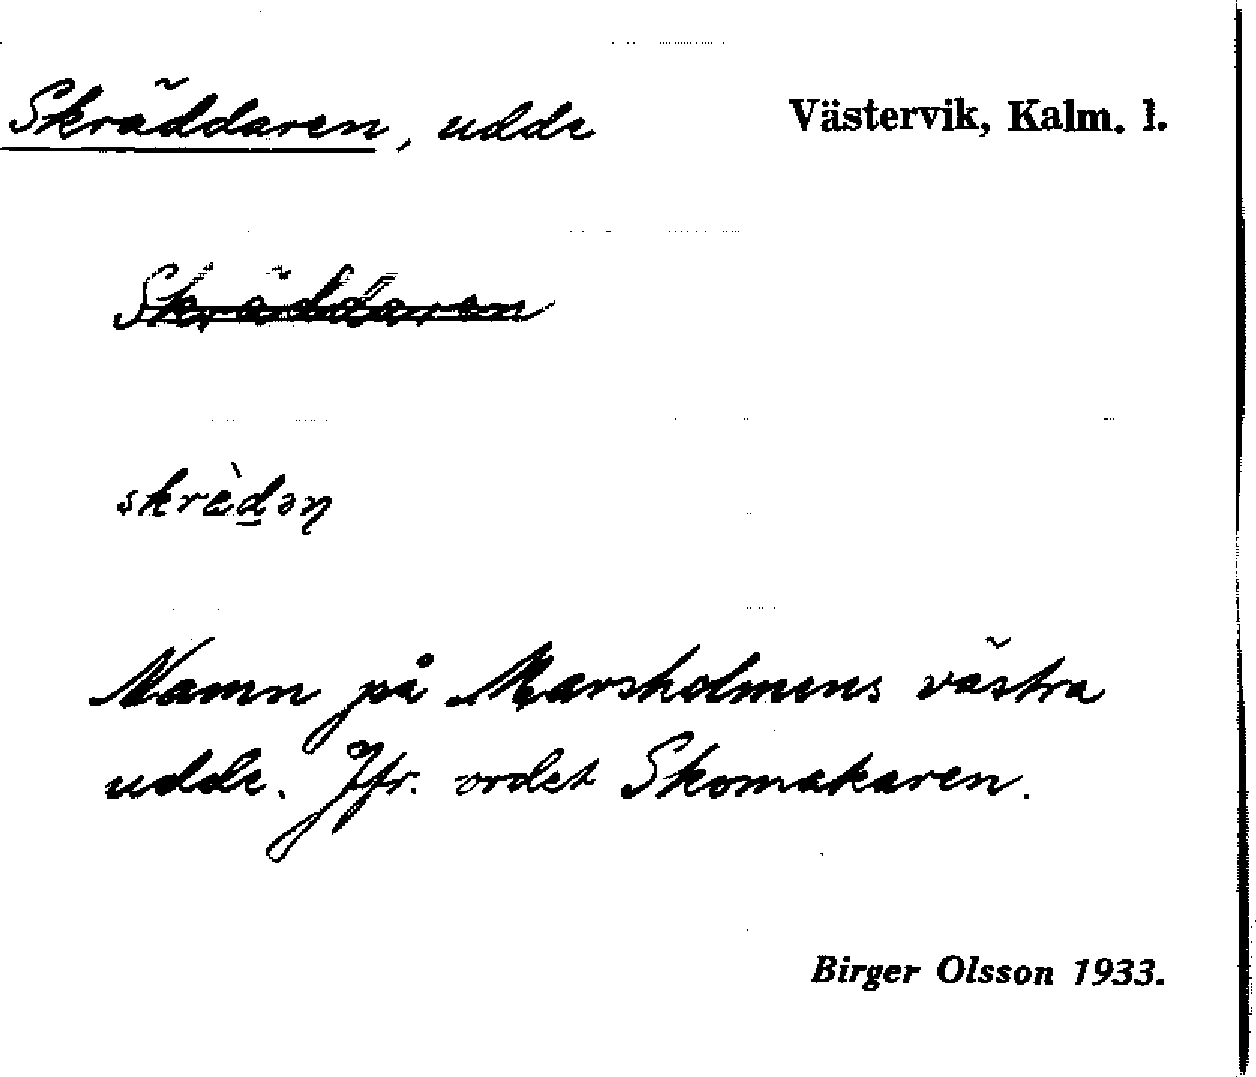 Skräddaren, udde Västervik, Kalm. l.
Skräddaren
skrèdəṇ
Namn på Marsholmens västra
udde. Jfr. ordet Skomakaren.
Birger Olsson 1933.